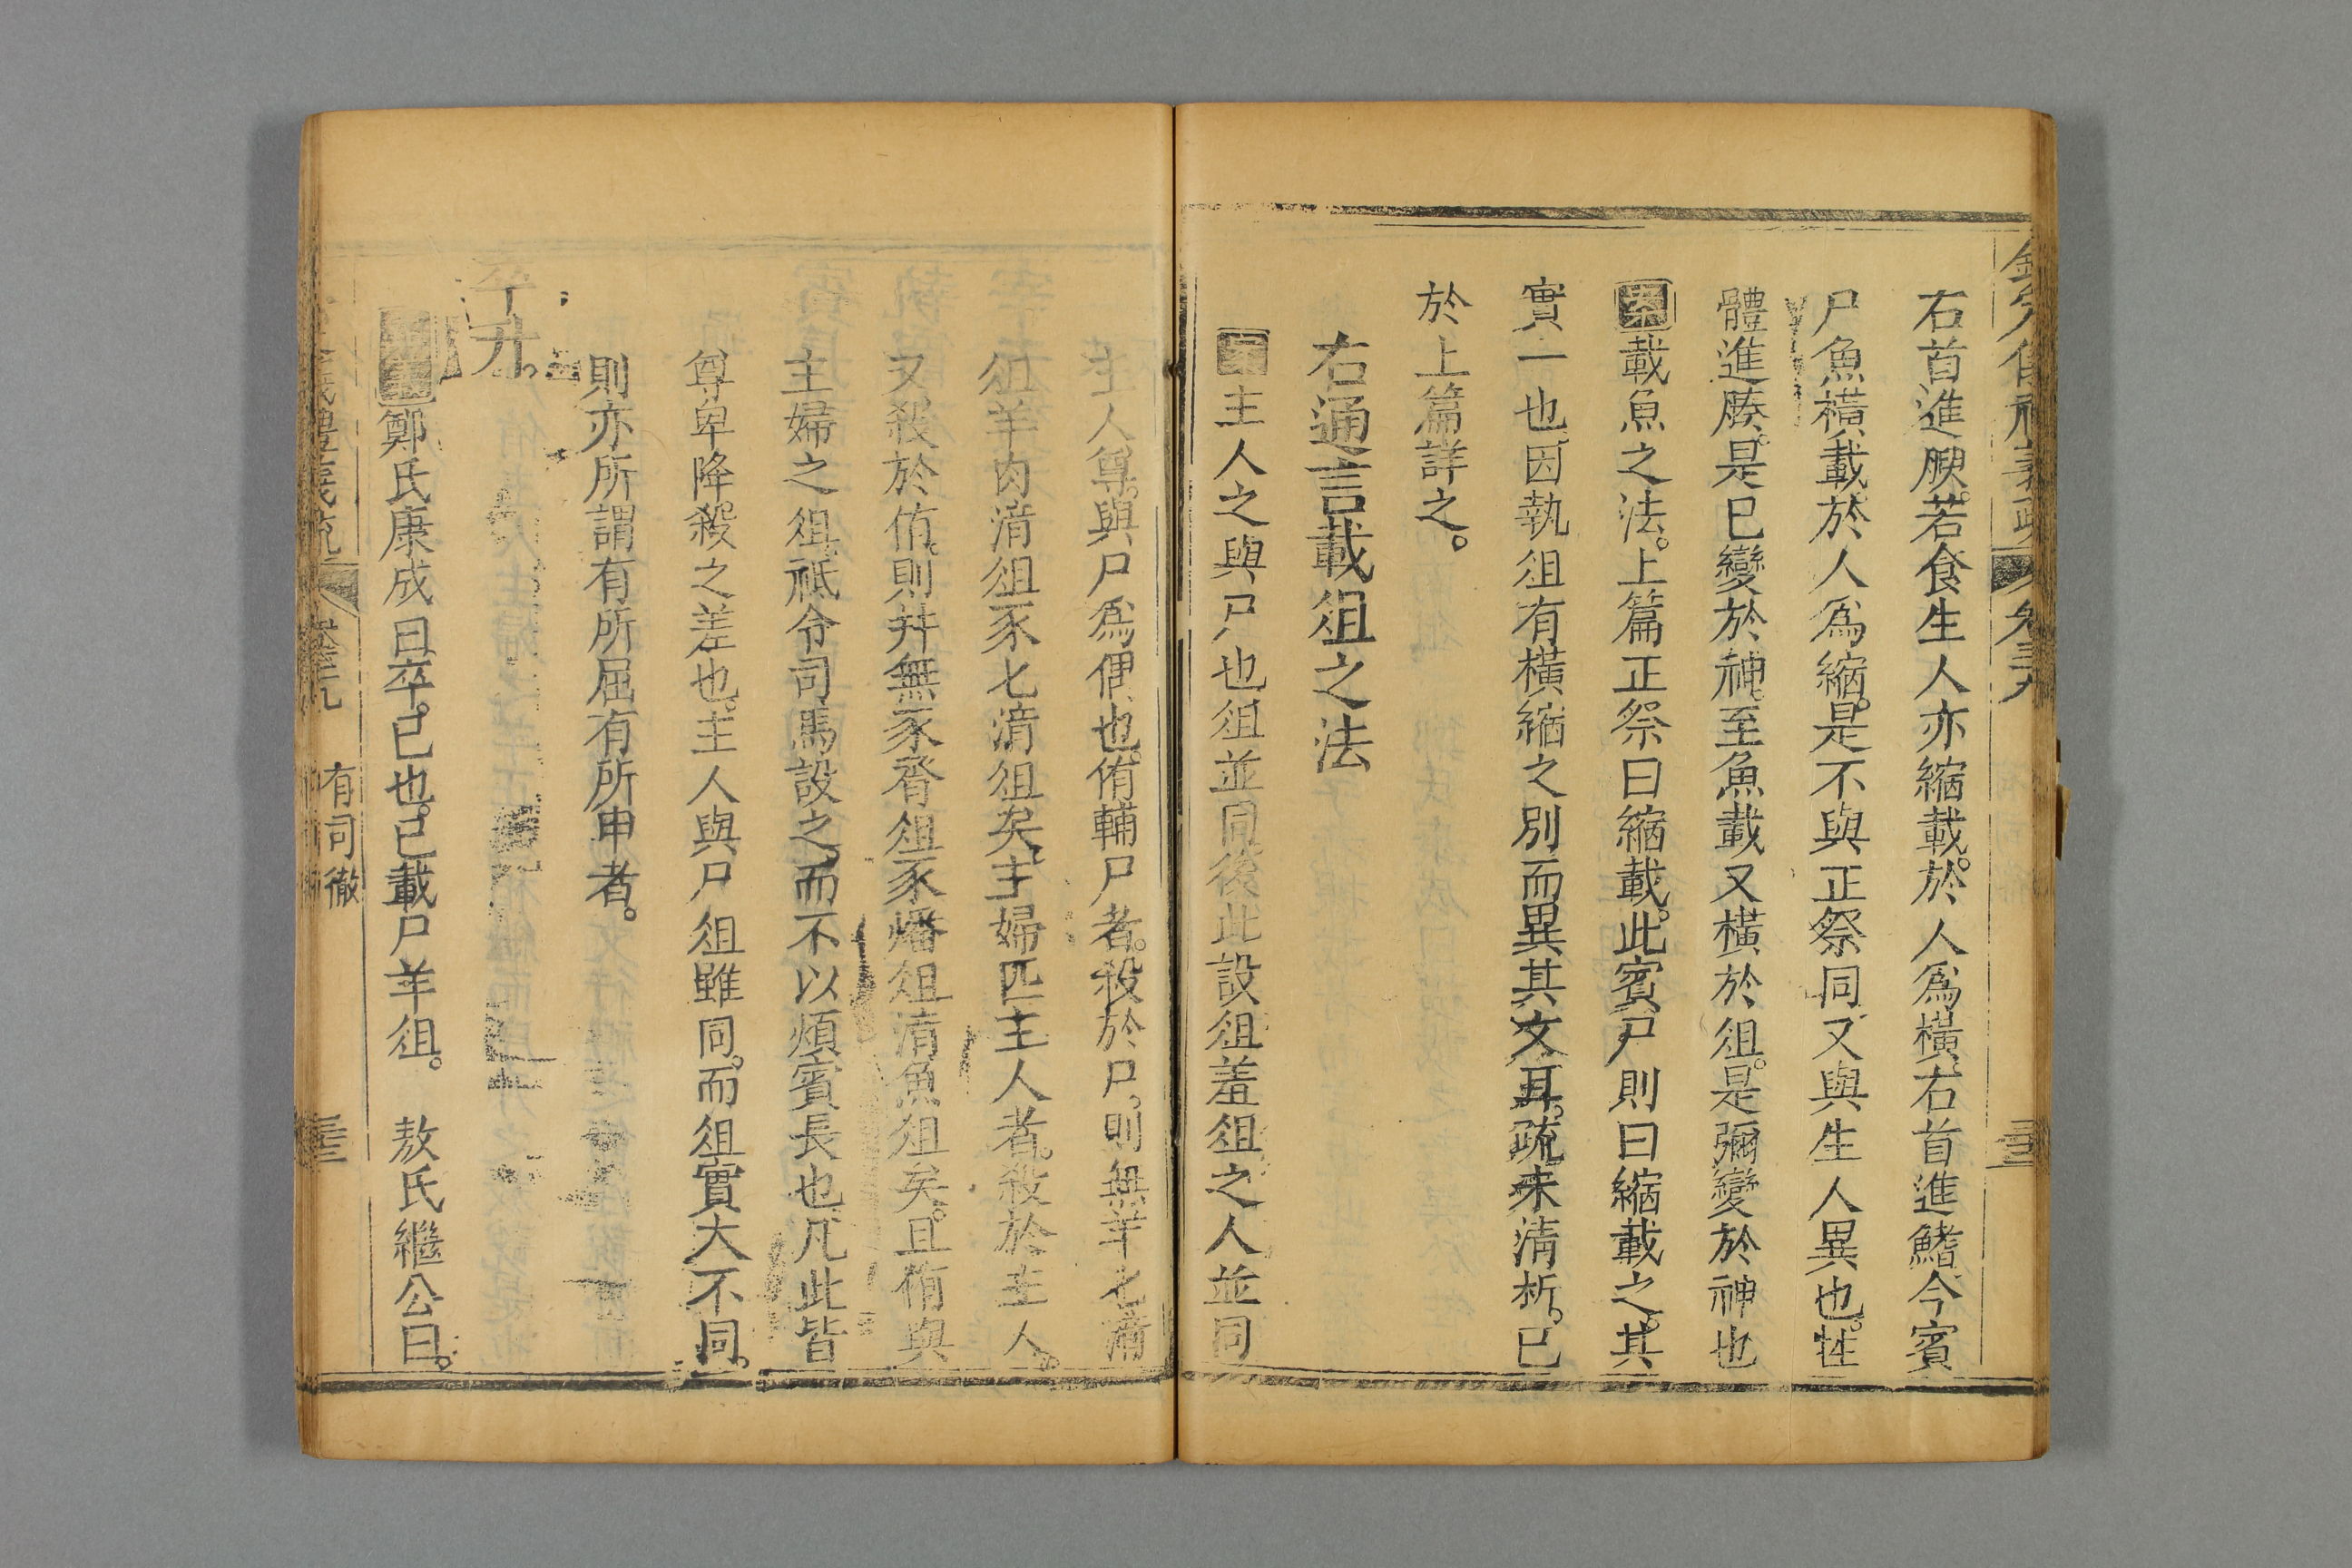 右首進腴。若食生人亦縮載。於人爲橫。右首進鰭。今賓
尸魚橫載。於人爲縮。是不與正祭同。又與生人異也。牲
體進腠。是已變於神。至魚載又橫於俎。是彌變於神也
載魚之法。上篇正祭曰縮載。此賓尸則曰縮載之。其
實一也。因執俎有橫縮之別而異其文耳。疏未淸析。已
於上篇詳之。
右通言載俎之法
主人之與尸也俎並同後此設俎羞俎之人並同
主人尊。與尸爲偶也。侑輔尸者。殺於尸。則無羊匕湆
俎羊肉湆俎豕匕湆俎矣。主婦匹主人者。殺於主人。
又殺於侑。則幷無豕脀俎豕燔俎湆魚俎矣。且侑與
主婦之俎。祗令司馬設之。而不以煩賓長也。凡此皆
尊卑降殺之差也。主人與尸俎雖同。而俎實大不同。
則亦所謂有所屈有所申者。
卒升。
鄭氏康成曰卒。已也。已載尸羊俎。 敖氏繼公曰。
有司徹